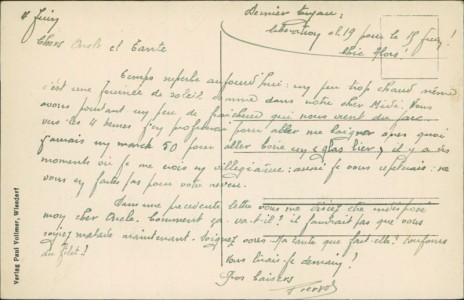 8 Juin
Dernier tuyau:
libération le 19 pour le 18 Juin!
Chers Oncle et Tante
Temps superbe aujourd'hui: un peu trop chaud même
c'est une journée de soleil comme dans notre cher Midi. Nous
avons pourtant un peu de fraîcheur qui nous vient du parc.
vers les 4 heures j'en profiterai pour aller me baigner après quoi
j'aurais un mark 50 pour aller boire un "glas bier", il y a des
moments où je me crois en villégiature: aussi je vous répéterai: ne
vous en faites pas pour votre neveu.
Dans une précédente lettre vous me disiez être indisposé
mon cher Oncle. Comment ça va-t-il? il faudrait pas que vous
soyiez malade maintenant. Soignez vous. Ma tante que fait-elle? toujours
du filet?
Vous lirai-je demain?
Gros baisers
Verlag Paul Vollmer, Wünsdorf